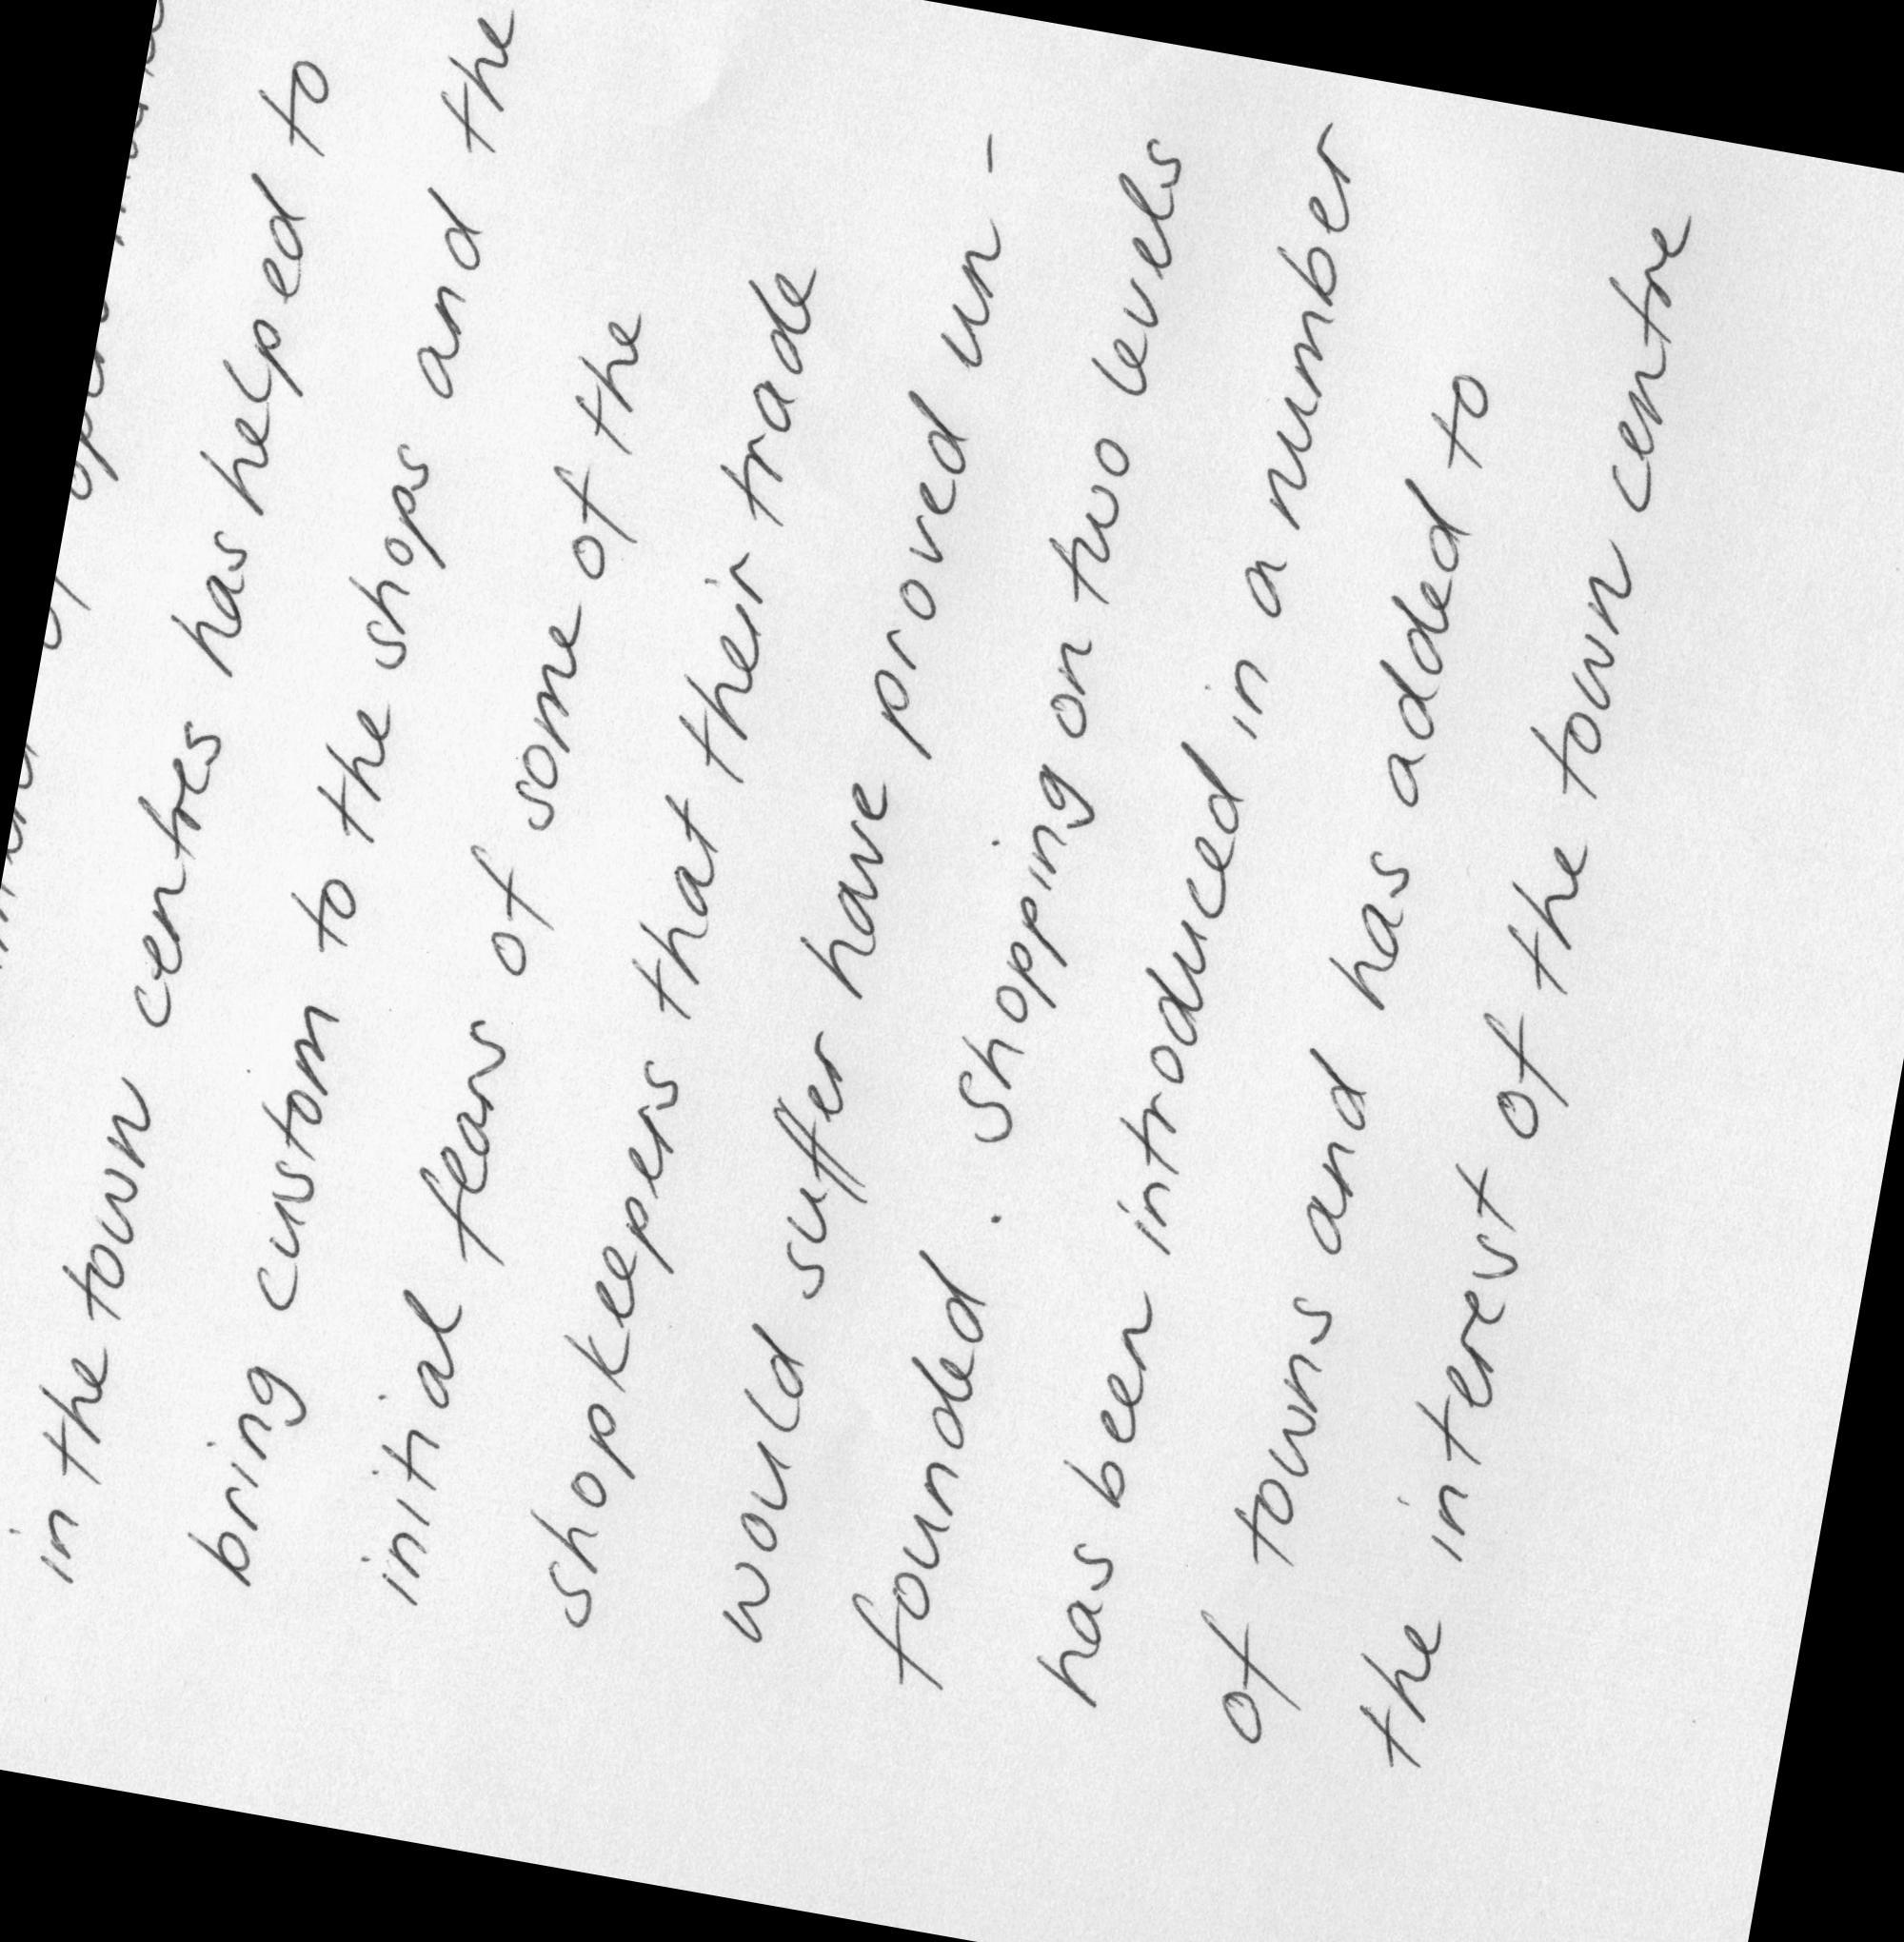 in the town centres has helped to
bring custom to the shops and the
initial fears of some of the
shopkeepers that their trade
would suffer have proved un-
founded. Shopping on two levels
has been introduced in a number
of towns and has added to
the interest of the town centre